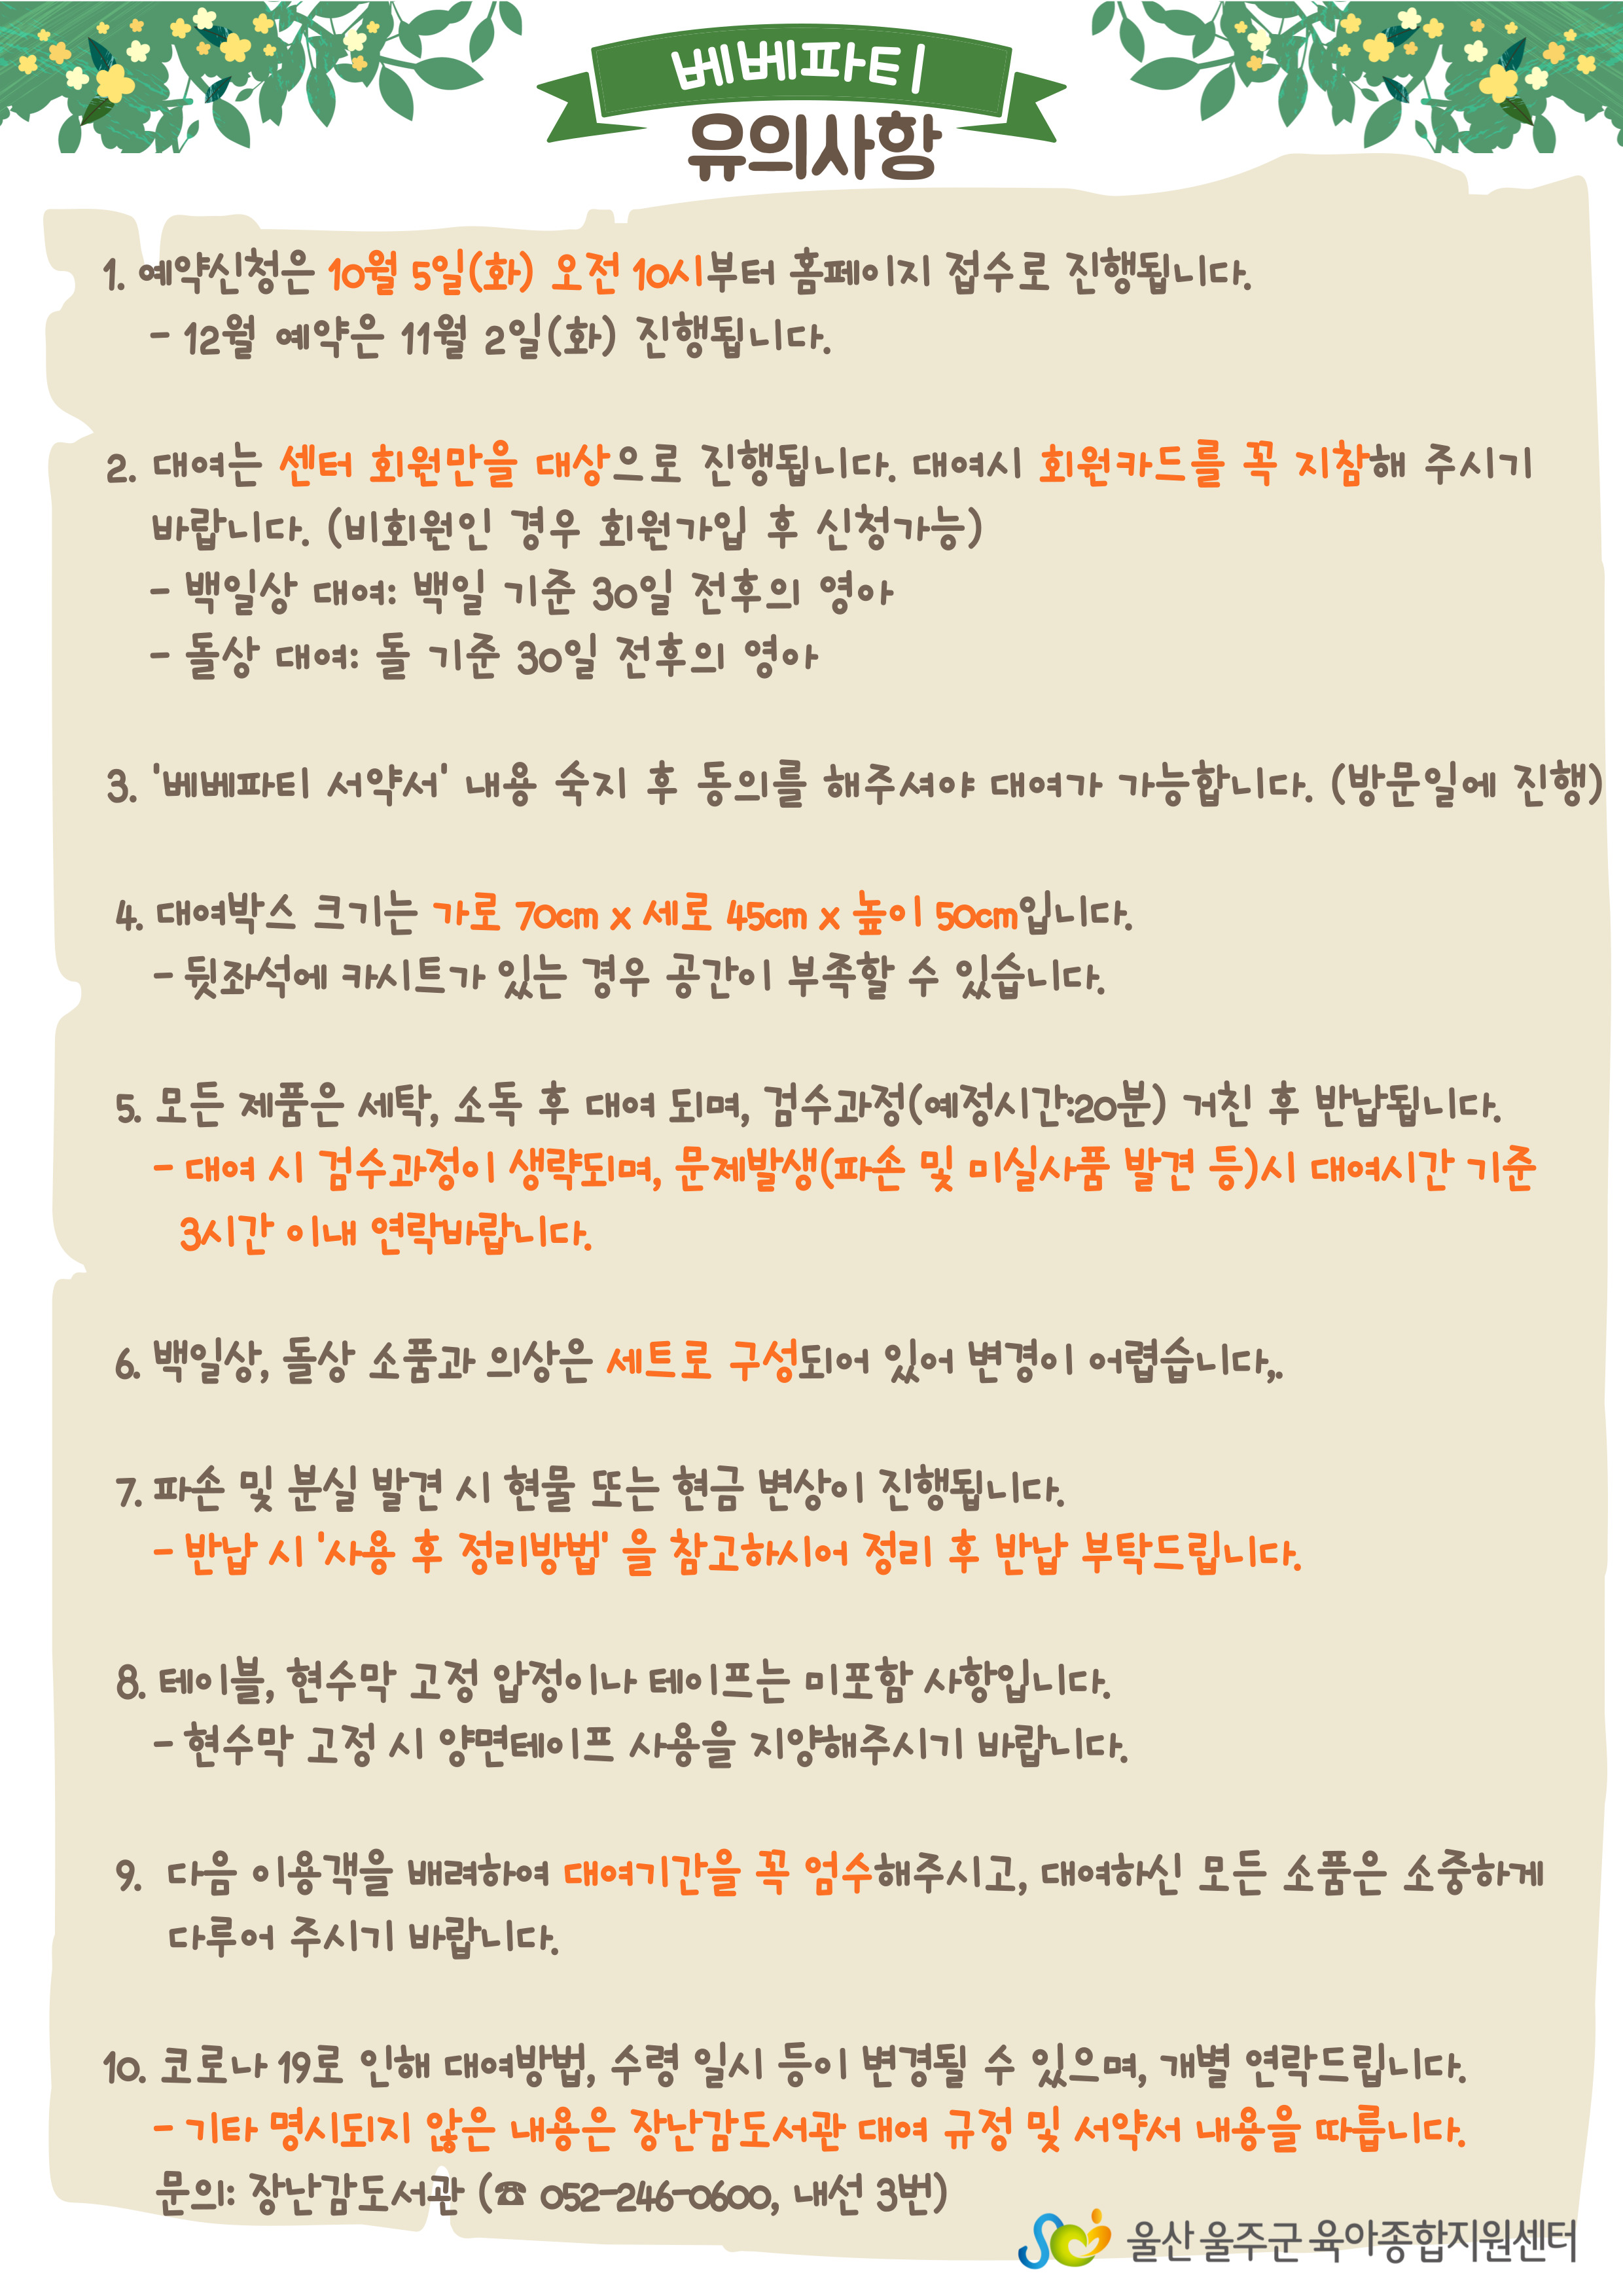 베베파티
유의사항
1. 예약신청은 10월 5일(화) 오전 10시부터 홈페이지 접수로 진행됩니다.
- 12월 예약은 11월 2일(화) 진행됩니다.
2. 대여는 센터 회원만을 대상으로 진행됩니다. 대여시 회원카드를 꼭 지참해 주시기
바랍니다. (비회원인 경우 회원가입 후 신청가능)
- 백일상 대여: 백일 기준 30일 전후의 영아
- 돌상 대여: 돌 기준 30일 전후의 영아
3. '베베파티 서약서' 내용 숙지 후 동의를 해주셔야 대여가 가능합니다. (방문일에 진행)
4. 대여박스 크기는 가로 70cm x 세로 45cm x 높이 50cm입니다.
- 뒷좌석에 카시트가 있는 경우 공간이 부족할 수 있습니다.
5. 모든 제품은 세탁, 소독 후 대여 되며, 검수과정(예정시간:20분) 거친 후 반납됩니다.
- 대여 시 검수과정이 생략되며, 문제발생(파손 및 미실사품 발견 등)시 대여시간 기준
3시간 이내 연락바랍니다.
6. 백일상, 돌상 소품과 의상은 세트로 구성되어 있어 변경이 어렵습니다,.
7. 파손 및 분실 발견 시 현물 또는 현금 변상이 진행됩니다.
- 반납 시 '사용 후 정리방법' 을 참고하시어 정리 후 반납 부탁드립니다.
8. 테이블, 현수막 고정 압정이나 테이프는 미포함 사항입니다.
- 현수막 고정 시 양면테이프 사용을 지양해주시기 바랍니다.
9. 다음 이용객을 배려하여 대여기간을 꼭 엄수해주시고, 대여하신 모든 소품은 소중하게
다루어 주시기 바랍니다.
10. 코로나 19로 인해 대여방법, 수령 일시 등이 변경될 수 있으며, 개별 연락드립니다.
- 기타 명시되지 않은 내용은 장난감도서관 대여 규정 및 서약서 내용을 따릅니다.
문의: 장난감도서관 (☎ 052-246-0600, 내선 3번)
울산 울주군 육아종합지원센터